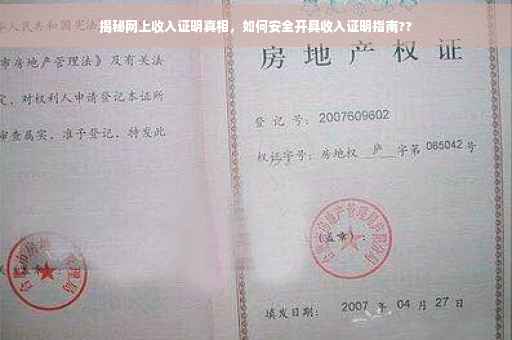 揭秘网上收入证明真相，如何安全开具收入证明指南??
人民共和国宪法
市房地产管理法》及有关法
定，对权利人申请登记本证所
审查属实，准予登记，特发此
房地产权证
登记号：2007609602
权证字号：房地权 庐 字第 065042 号
(盖章)：
填发日期：2007 年 04 月 27 日